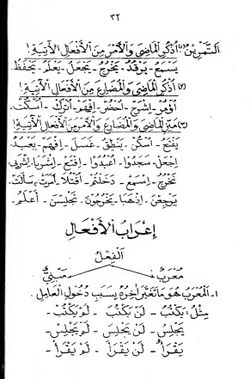 ٢٢
التمرين (١) أذكر الماضي والأمر من الأفعال الآتية!
يسمع - يرقد - يخرج - يجعل - يعلم - يحفظ.
(٢) أذكر الماضي والمضارع من الأفعال الآتية!
اشرح - احضر - افهم - أترك - اسكت.
(٣) ميز الماضي والمضارع والأمر من الأفعال الآتية!
يفتح - اسكن - ينطق - غسل - افهم - يعبد
اجعل - سجدوا - اعبدوا - افتح - اشربا - اشربي
تخرج - اسمع - دخلتم - أقتلا - أمرت - سألت.
يرجعن - اذهبا - يخرجون - تجلسن - أعلم.
إعراب الأفعال
الفعل
معرب مبني
١- المعرب هو ما تغير آخره بسبب دخول العامل
مثل: يكتب - لن يكتب - لم يكتب.
يجلس - لن يجلس - لم يجلس.
يقرأ - لن يقرأ - لم يقرأ -